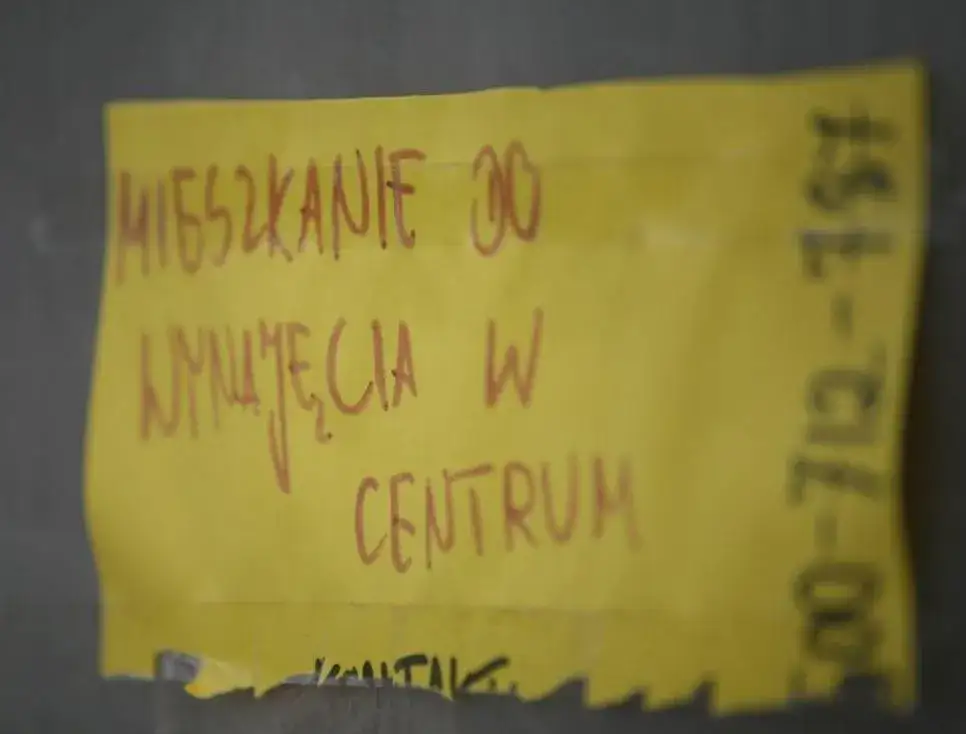 MIESZKANIE DO
WYNAJĘCIA W
CENTRUM
KONTAKT